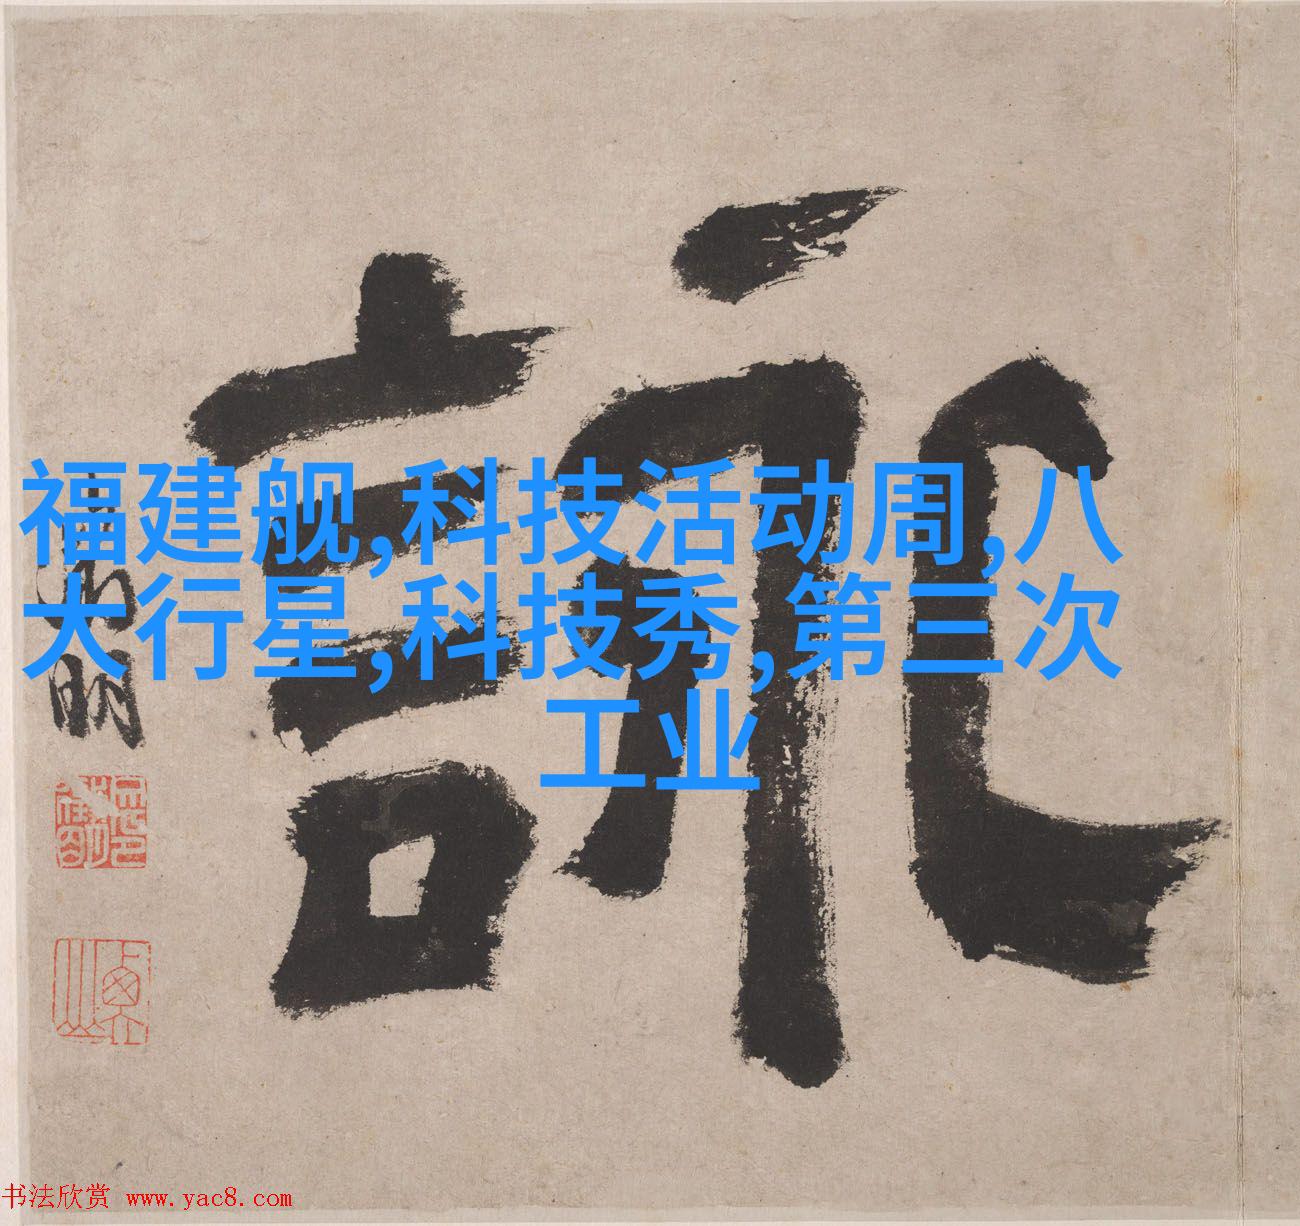 詠
福建舰,科技活动周,八
大行星,科技秀,第三次
工业
明
书法欣赏 www.yac8.com